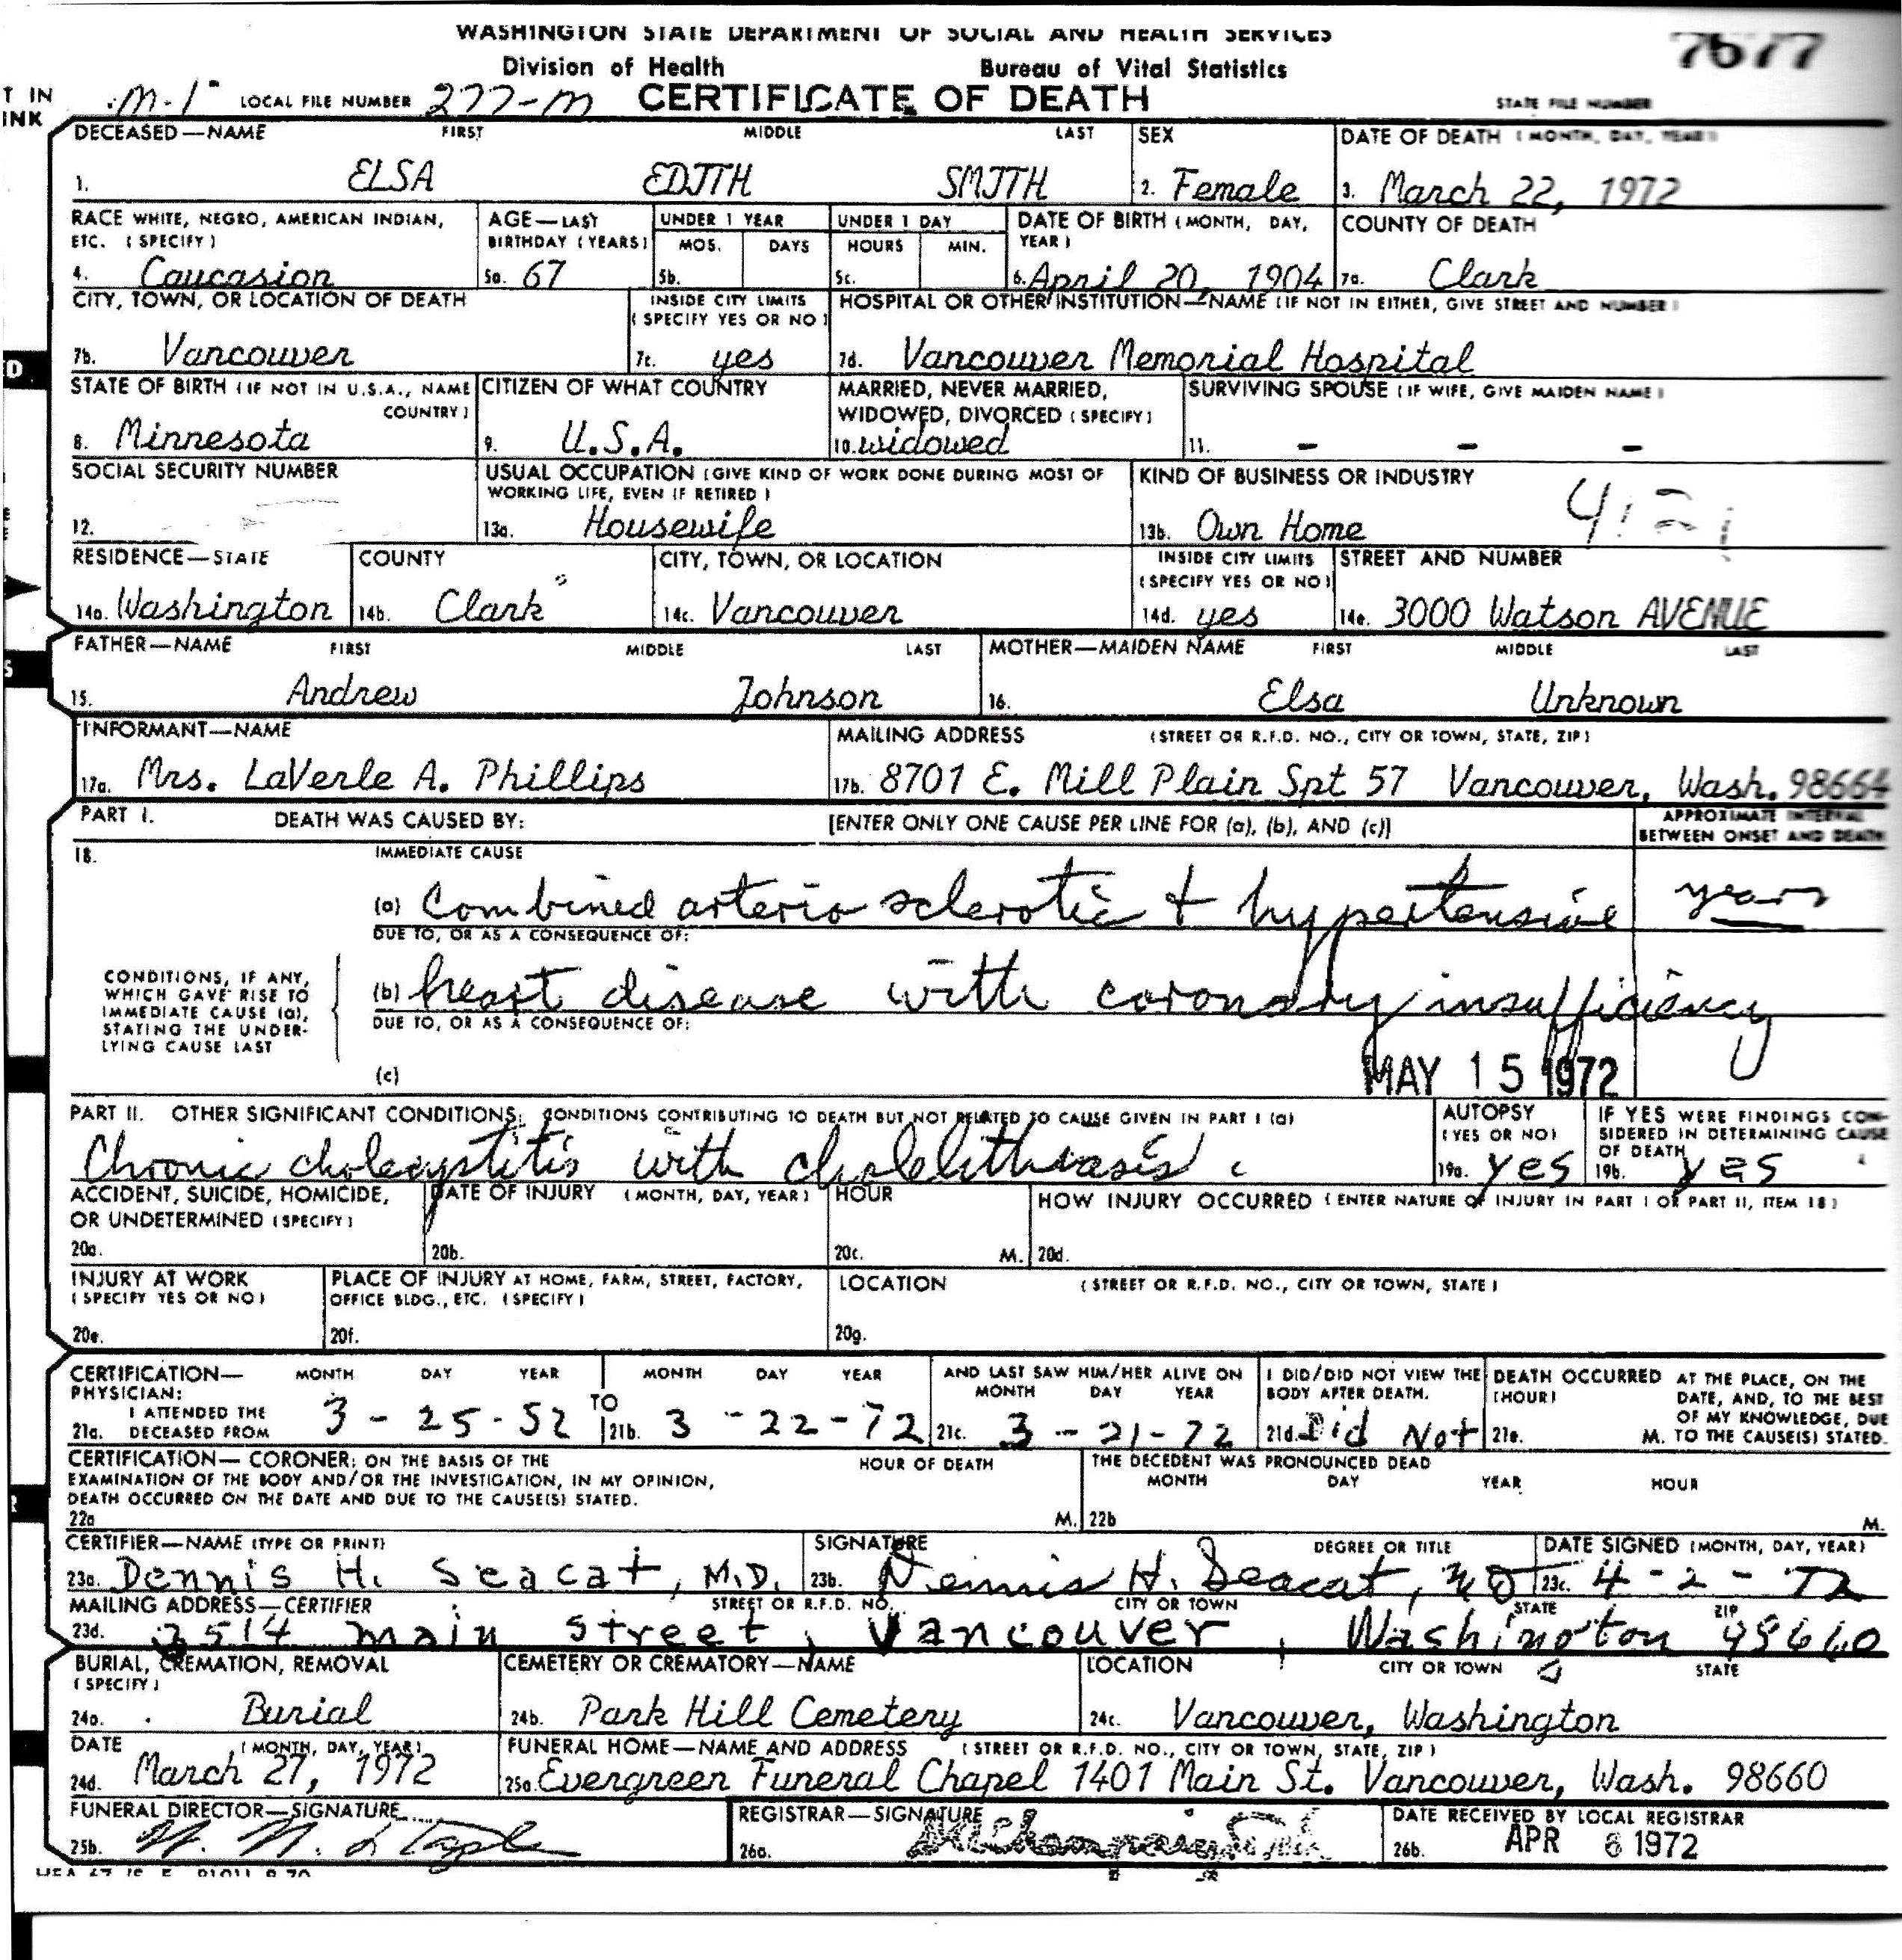 WASHINGTON STATE DEPARTMENT OF SOCIAL AND HEALTH SERVICES
7677
Division of Health Bureau of Vital Statistics
T IN
INK
M-1 LOCAL FILE NUMBER 277-M CERTIFICATE OF DEATH STATE FILE NUMBER
DECEASED—NAME FIRST MIDDLE LAST SEX DATE OF DEATH (MONTH, DAY, YEAR)
1. ELSA EDITH SMITH 2. Female 3. March 22, 1972
RACE WHITE, NEGRO, AMERICAN INDIAN, AGE—LAST UNDER 1 YEAR UNDER 1 DAY DATE OF BIRTH (MONTH, DAY, COUNTY OF DEATH
ETC. (SPECIFY) BIRTHDAY (YEARS) MOS. DAYS HOURS MIN. YEAR)
4. Caucasion 5a. 67 5b. 5c. 6. April 20, 1904 7a. Clark
CITY, TOWN, OR LOCATION OF DEATH INSIDE CITY LIMITS HOSPITAL OR OTHER INSTITUTION—NAME (IF NOT IN EITHER, GIVE STREET AND NUMBER)
(SPECIFY YES OR NO)
7b. Vancouver 7c. yes 7d. Vancouver Memorial Hospital
STATE OF BIRTH (IF NOT IN U.S.A., NAME CITIZEN OF WHAT COUNTRY MARRIED, NEVER MARRIED, SURVIVING SPOUSE (IF WIFE, GIVE MAIDEN NAME)
COUNTRY) WIDOWED, DIVORCED (SPECIFY)
8. Minnesota 9. U.S.A. 10. widowed 11. - - -
SOCIAL SECURITY NUMBER USUAL OCCUPATION (GIVE KIND OF WORK DONE DURING MOST OF KIND OF BUSINESS OR INDUSTRY
WORKING LIFE, EVEN IF RETIRED)
12. 13a. Housewife 13b. Own Home
RESIDENCE—STATE COUNTY CITY, TOWN, OR LOCATION INSIDE CITY LIMITS STREET AND NUMBER
(SPECIFY YES OR NO)
14a. Washington 14b. Clark 14c. Vancouver 14d. yes 14e. 3000 Watson AVENUE
FATHER—NAME FIRST MIDDLE LAST MOTHER—MAIDEN NAME FIRST MIDDLE LAST
15. Andrew Johnson 16. Elsa Unknown
INFORMANT—NAME MAILING ADDRESS (STREET OR R.F.D. NO., CITY OR TOWN, STATE, ZIP)
17a. Mrs. LaVerle A. Phillips 17b. 8701 E. Mill Plain Spt 57 Vancouver, Wash. 98664
PART I. DEATH WAS CAUSED BY: [ENTER ONLY ONE CAUSE PER LINE FOR (a), (b), AND (c)] APPROXIMATE INTERVAL
BETWEEN ONSET AND DEATH
18. IMMEDIATE CAUSE
(a) Combined arterio sclerotic + hypertensive years
DUE TO, OR AS A CONSEQUENCE OF:
CONDITIONS, IF ANY,
WHICH GAVE RISE TO
IMMEDIATE CAUSE (a),
STATING THE UNDER-
LYING CAUSE LAST
(b) heart disease with coronary insufficiency
DUE TO, OR AS A CONSEQUENCE OF:
(c)
MAY 15 1972
PART II. OTHER SIGNIFICANT CONDITIONS: CONDITIONS CONTRIBUTING TO DEATH BUT NOT RELATED TO CAUSE GIVEN IN PART I (a) AUTOPSY IF YES WERE FINDINGS CON-
(YES OR NO) SIDERED IN DETERMINING CAUSE
OF DEATH
Chronic cholecystitis with cholelithiasis. 19a. yes 19b. yes
ACCIDENT, SUICIDE, HOMICIDE, DATE OF INJURY (MONTH, DAY, YEAR) HOUR HOW INJURY OCCURRED (ENTER NATURE OF INJURY IN PART I OR PART II, ITEM 18)
OR UNDETERMINED (SPECIFY)
20a. 20b. 20c. M. 20d.
INJURY AT WORK PLACE OF INJURY AT HOME, FARM, STREET, FACTORY, LOCATION (STREET OR R.F.D. NO., CITY OR TOWN, STATE)
(SPECIFY YES OR NO) OFFICE BLDG., ETC. (SPECIFY)
20e. 20f. 20g.
CERTIFICATION— MONTH DAY YEAR MONTH DAY YEAR AND LAST SAW HIM/HER ALIVE ON I DID/DID NOT VIEW THE DEATH OCCURRED AT THE PLACE, ON THE
PHYSICIAN: MONTH DAY YEAR BODY AFTER DEATH. (HOUR) DATE, AND, TO THE BEST
I ATTENDED THE TO OF MY KNOWLEDGE, DUE
21a. DECEASED FROM 3-25-52 21b. 3-22-72 21c. 3-21-72 21d. Did Not 21e. M. TO THE CAUSE(S) STATED.
CERTIFICATION—CORONER: ON THE BASIS OF THE HOUR OF DEATH THE DECEDENT WAS PRONOUNCED DEAD
EXAMINATION OF THE BODY AND/OR THE INVESTIGATION, IN MY OPINION, MONTH DAY YEAR HOUR
DEATH OCCURRED ON THE DATE AND DUE TO THE CAUSE(S) STATED.
22a M. 22b M.
CERTIFIER—NAME (TYPE OR PRINT) SIGNATURE DEGREE OR TITLE DATE SIGNED (MONTH, DAY, YEAR)
23a. Dennis H. Seacat, M.D. 23b. Dennis H. Seacat, MD 23c. 4-2-72
MAILING ADDRESS—CERTIFIER STREET OR R.F.D. NO. CITY OR TOWN STATE ZIP
23d. 3514 main street, Vancouver, Washington 98660
BURIAL, CREMATION, REMOVAL CEMETERY OR CREMATORY—NAME LOCATION CITY OR TOWN STATE
(SPECIFY)
24a. Burial 24b. Park Hill Cemetery 24c. Vancouver, Washington
DATE (MONTH, DAY, YEAR) FUNERAL HOME—NAME AND ADDRESS (STREET OR R.F.D. NO., CITY OR TOWN, STATE, ZIP)
24d. March 27, 1972 25a. Evergreen Funeral Chapel 1401 Main St. Vancouver, Wash. 98660
FUNERAL DIRECTOR—SIGNATURE REGISTRAR—SIGNATURE DATE RECEIVED BY LOCAL REGISTRAR
25b. 26a. 26b. APR 6 1972